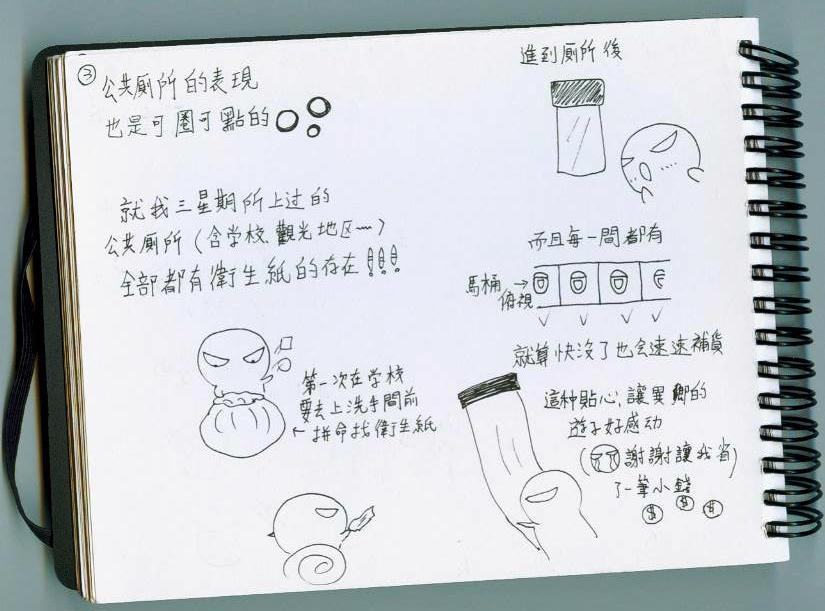 ③
公共厕所的表現
也是可圈可點的
就我三星期所上过的
公共厕所(含学校、觀光地区…)
全部都有衛生紙的存在!!!
第一次在学校
要去上洗手間前
←拼命找衛生紙
進到厠所後
而且每一間都有
馬桶→
俯視
就算快没了也会速速補貨
這种貼心,讓異鄉的
遊子好感动
(謝謝讓我省)
了一筆小錢
$ $ $